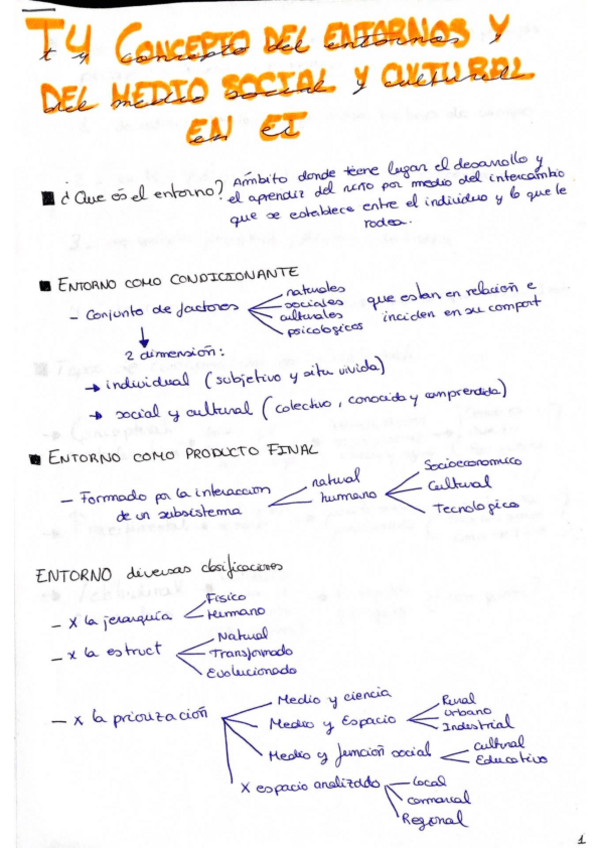 T4 CONCEPTO DEL ENTORNOS Y
DEL MEDIO SOCIAL Y CULTURAL
EN EI
¿Que es el entorno? Ámbito donde tiene lugar el desarrollo y
el aprendiz del niño por medio del intercambio
que se establece entre el individuo y lo que le
rodea.
ENTORNO COMO CONDICIONANTE
- Conjunto de factores
naturales
sociales
culturales
psicologicos
que estan en relación e
inciden en su comport
2 dimensión:
→ individual (subjetivo y situ vivida)
→ social y cultural (colectivo, conocida y comprendida)
ENTORNO COMO PRODUCTO FINAL
- Formado por la interaccion
de un subsistema
natural
humano
Socioeconomico
Cultural
Tecnologico
ENTORNO diversas clasificaciones
- x la jerarquía
Fisico
Humano
- x la estruct
Natural
Transformado
Evolucionado
- x la priorización
Medio y ciencia
Medio y Espacio
Rural
Urbano
Industrial
Medio y función social
Cultural
Educativo
x espacio analizado
Local
Comarcal
Regional
1